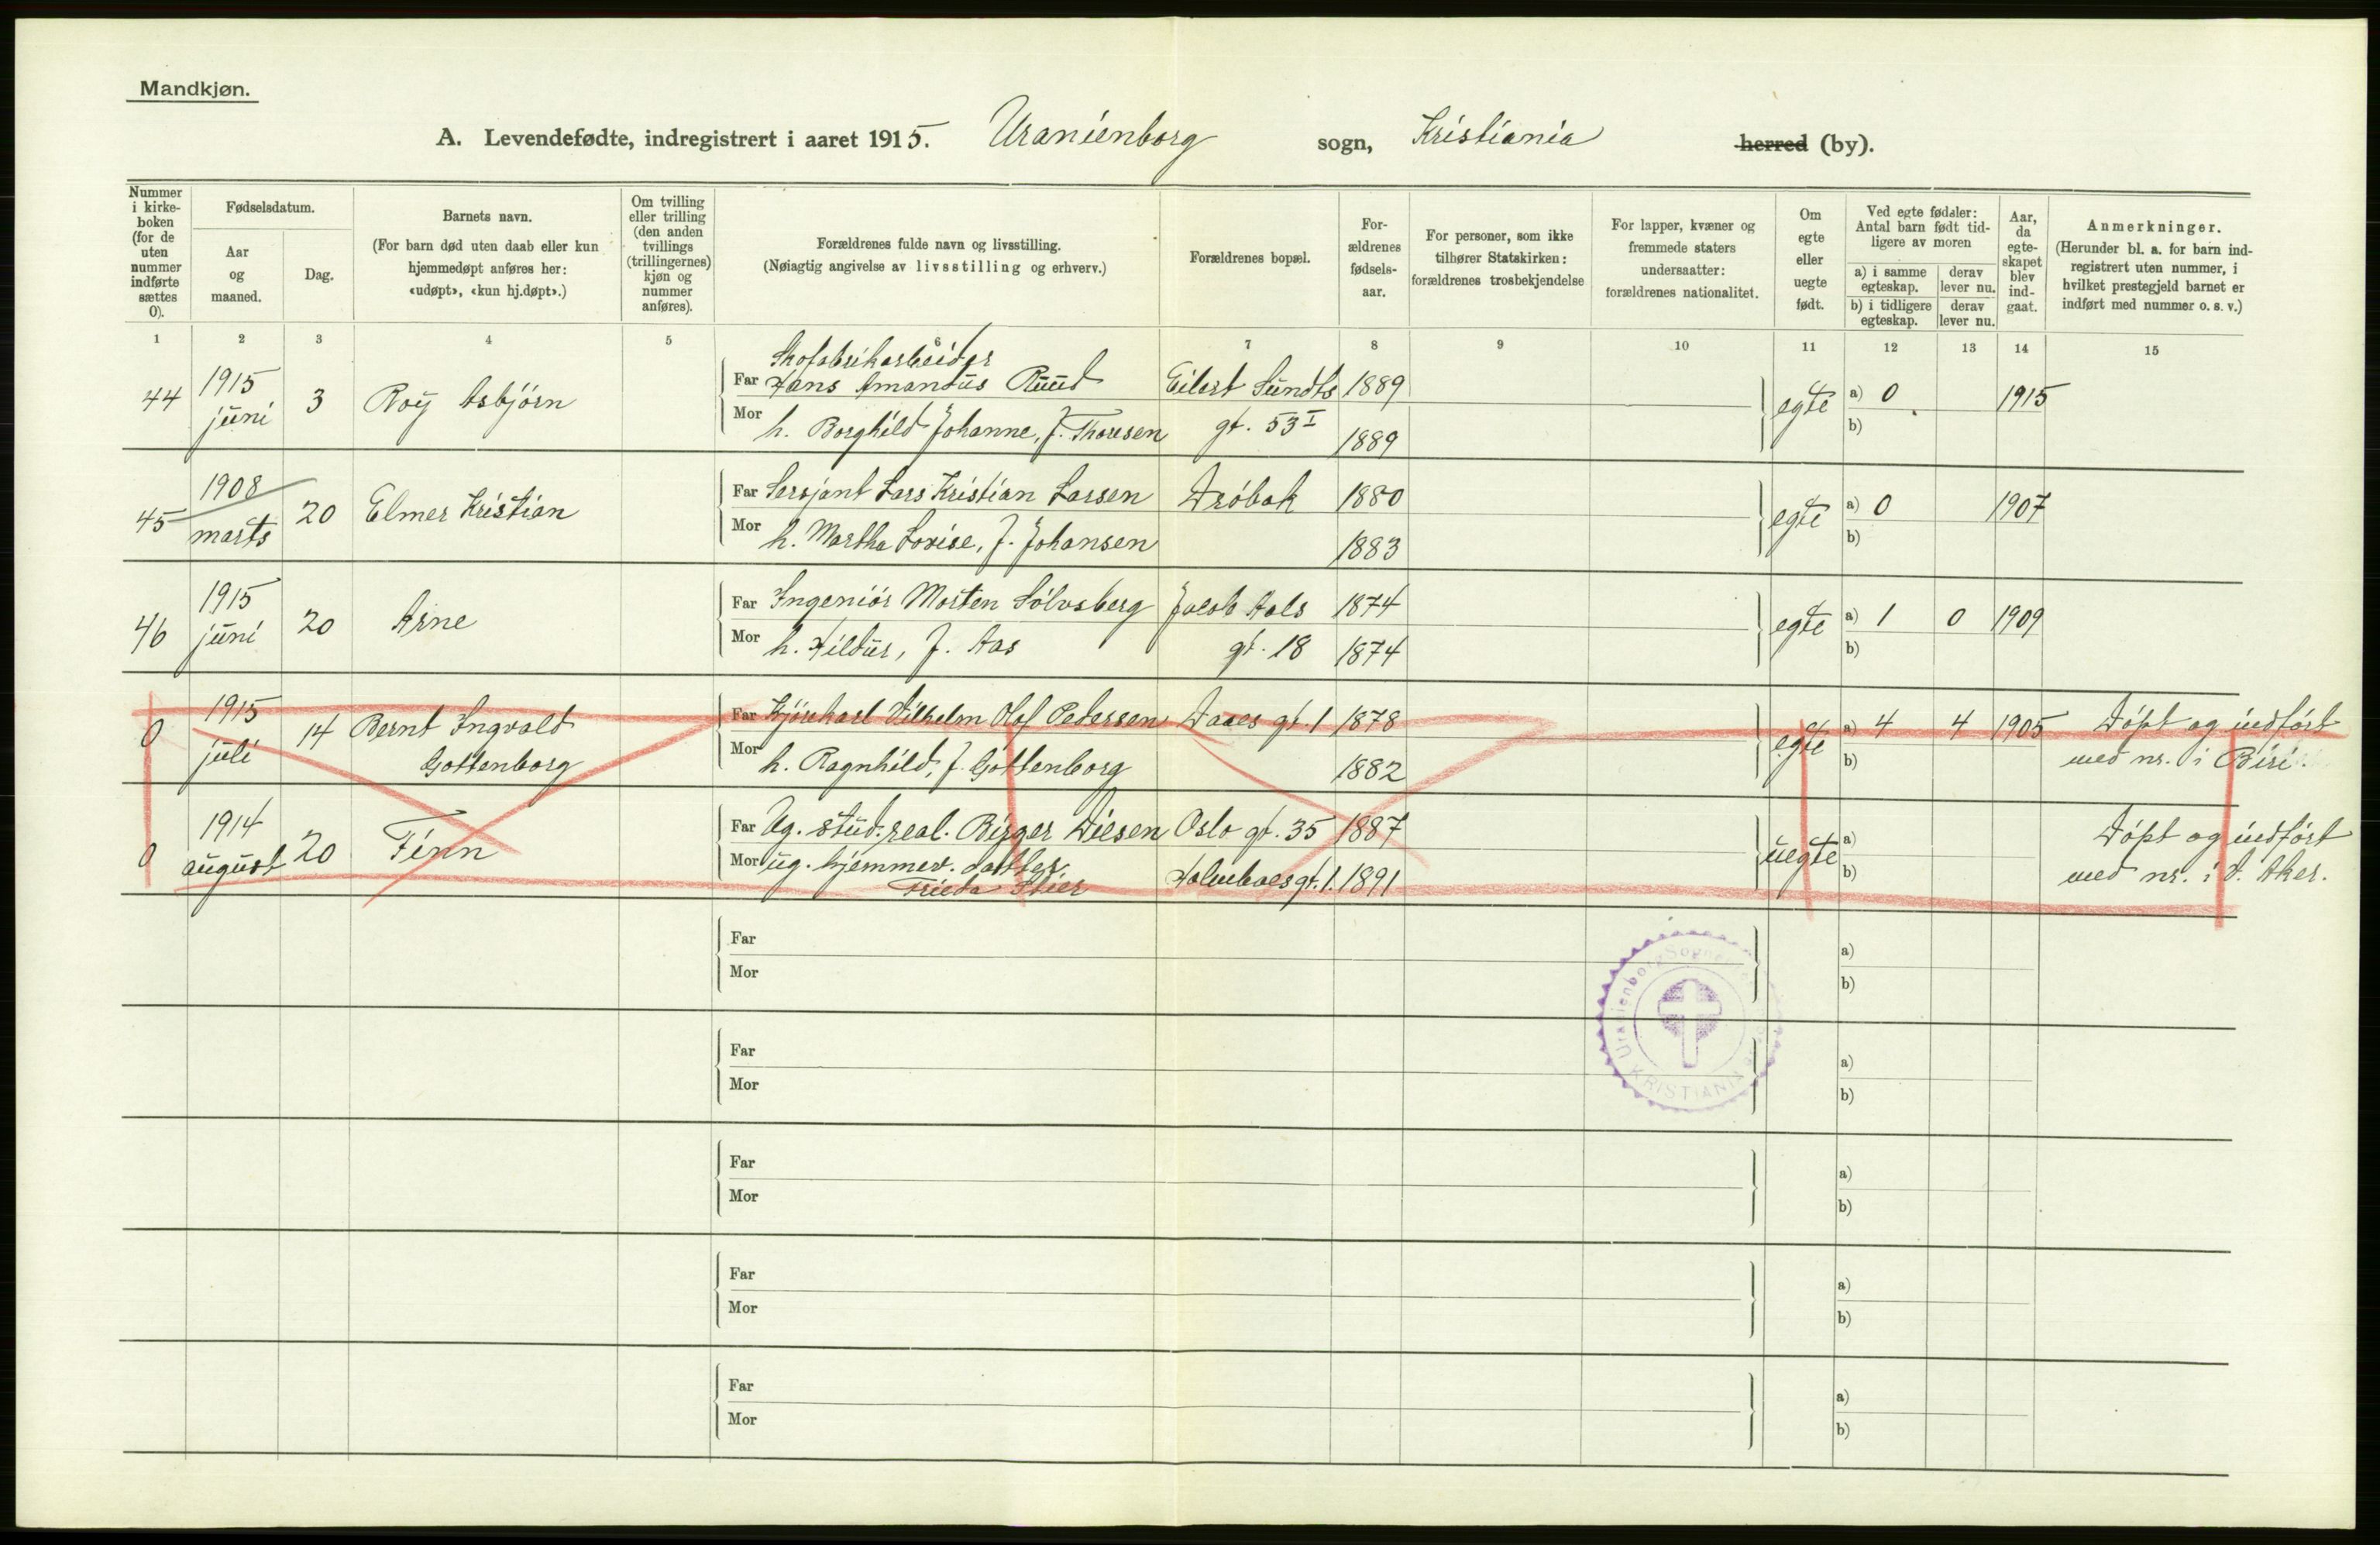 Mandkjøn.
A. Levendefødte, indregistrert i aaret 1915. Uranienborg sogn, Kristiania herred (by).
Nummer i kirke-boken (for de uten nummer indførte sættes 0).
Fødselsdatum.
Aar og maaned.
Dag.
Barnets navn.
(For barn død uten daab eller kun hjemmedøpt anføres her: «udøpt», «kun hj.døpt».)
Om tvilling eller trilling (den anden tvillings (trillingernes) kjøn og nummer anføres).
Forældrenes fulde navn og livsstilling.
(Nøiagtig angivelse av livsstilling og erhverv.)
Forældrenes bopæl.
For-ældrenes fødsels-aar.
For personer, som ikke tilhører Statskirken: forældrenes trosbekjendelse
For lapper, kvæner og fremmede staters undersaatter: forældrenes nationalitet.
Om egte eller uegte født.
Ved egte fødsler: Antal barn født tid-ligere av moren
a) i samme egteskap.
derav lever nu.
b) i tidligere egteskap.
derav lever nu.
Aar, da egte-skapet blev ind-gaat.
Anmerkninger.
(Herunder bl. a. for barn ind-registrert uten nummer, i hvilket prestegjeld barnet er indført med nummer o. s. v.)
1 2 3 4 5 6 7 8 9 10 11 12 13 14 15
Skofabrikarbeider
44 1915 juni 3 Roy Asbjörn Far Hans Amandus Ruud Eilert Sundts 1889 egte a) 0 1915
Mor h. Borghild Johanne, f. Thoresen gt. 53 I 1889 b)
45 1908 marts 20 Elmer Kristian Far Sersjant Lars Kristian Larsen Dröbak 1880 egte a) 0 1907
Mor h. Martha Lovise, f. Johansen 1883 b)
46 1915 juni 20 Arne Far Ingeniör Morten Sölvsberg Jacob Aals 1874 egte a) 1 0 1909
Mor h. Hildur, f. Aas gt. 18 1874 b)
0 1915 juli 14 Bernt Ingvald Far Kjörekarl Vilhelm Olof Pedersen Daaes gt. 1 1878 egte a) 4 4 1905 Döpt og indfört
Gottenborg Mor h. Ragnhild, f. Gottenborg 1882 b) med nr. i Biri.
0 1914 august 20 Finn Far Ug. stud. real. Birger Diesen Oslo gt. 35 1887 uegte a) Döpt og indfört
Mor ug. hjemmev. datter Holmboes gt. 1. 1891 b) med nr. i V. Aker.
Frieda Stier
Far a)
Mor b)
Far a)
Mor b)
Far a)
Mor b)
Far a)
Mor b)
Far a)
Mor b)
Uranienborg
KRISTIANIA